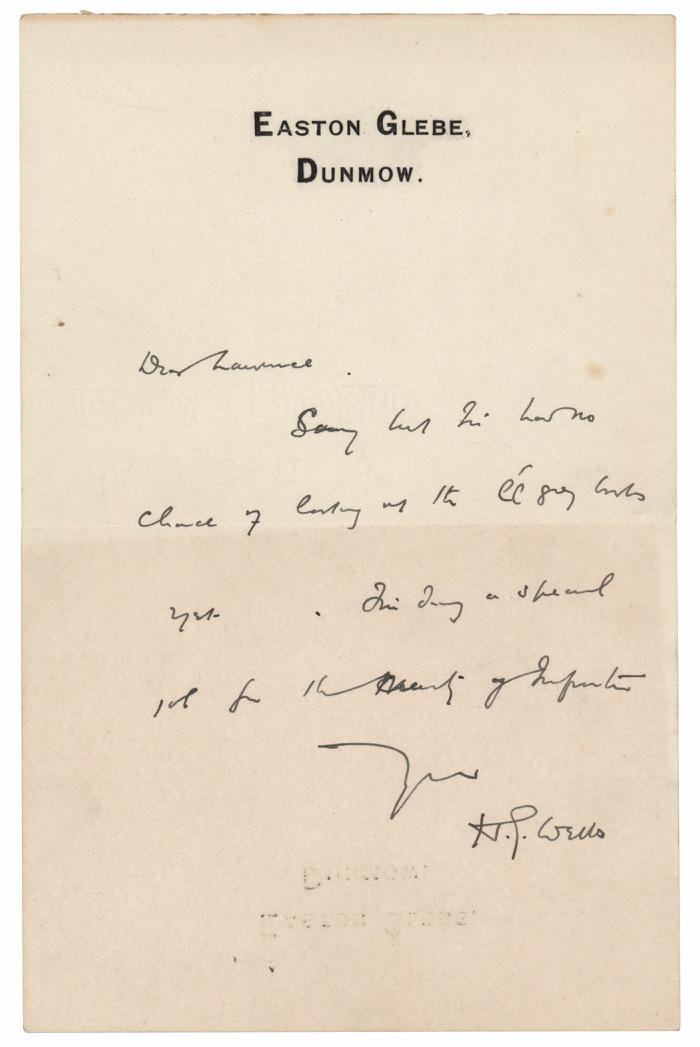 EASTON GLEBE,
DUNMOW.
Dear Lawrence.
Sorry but I've had no
chance of looking at the grey books
yet. I'm doing a special
job for the Ministry of Information
Yours
H.G. Wells